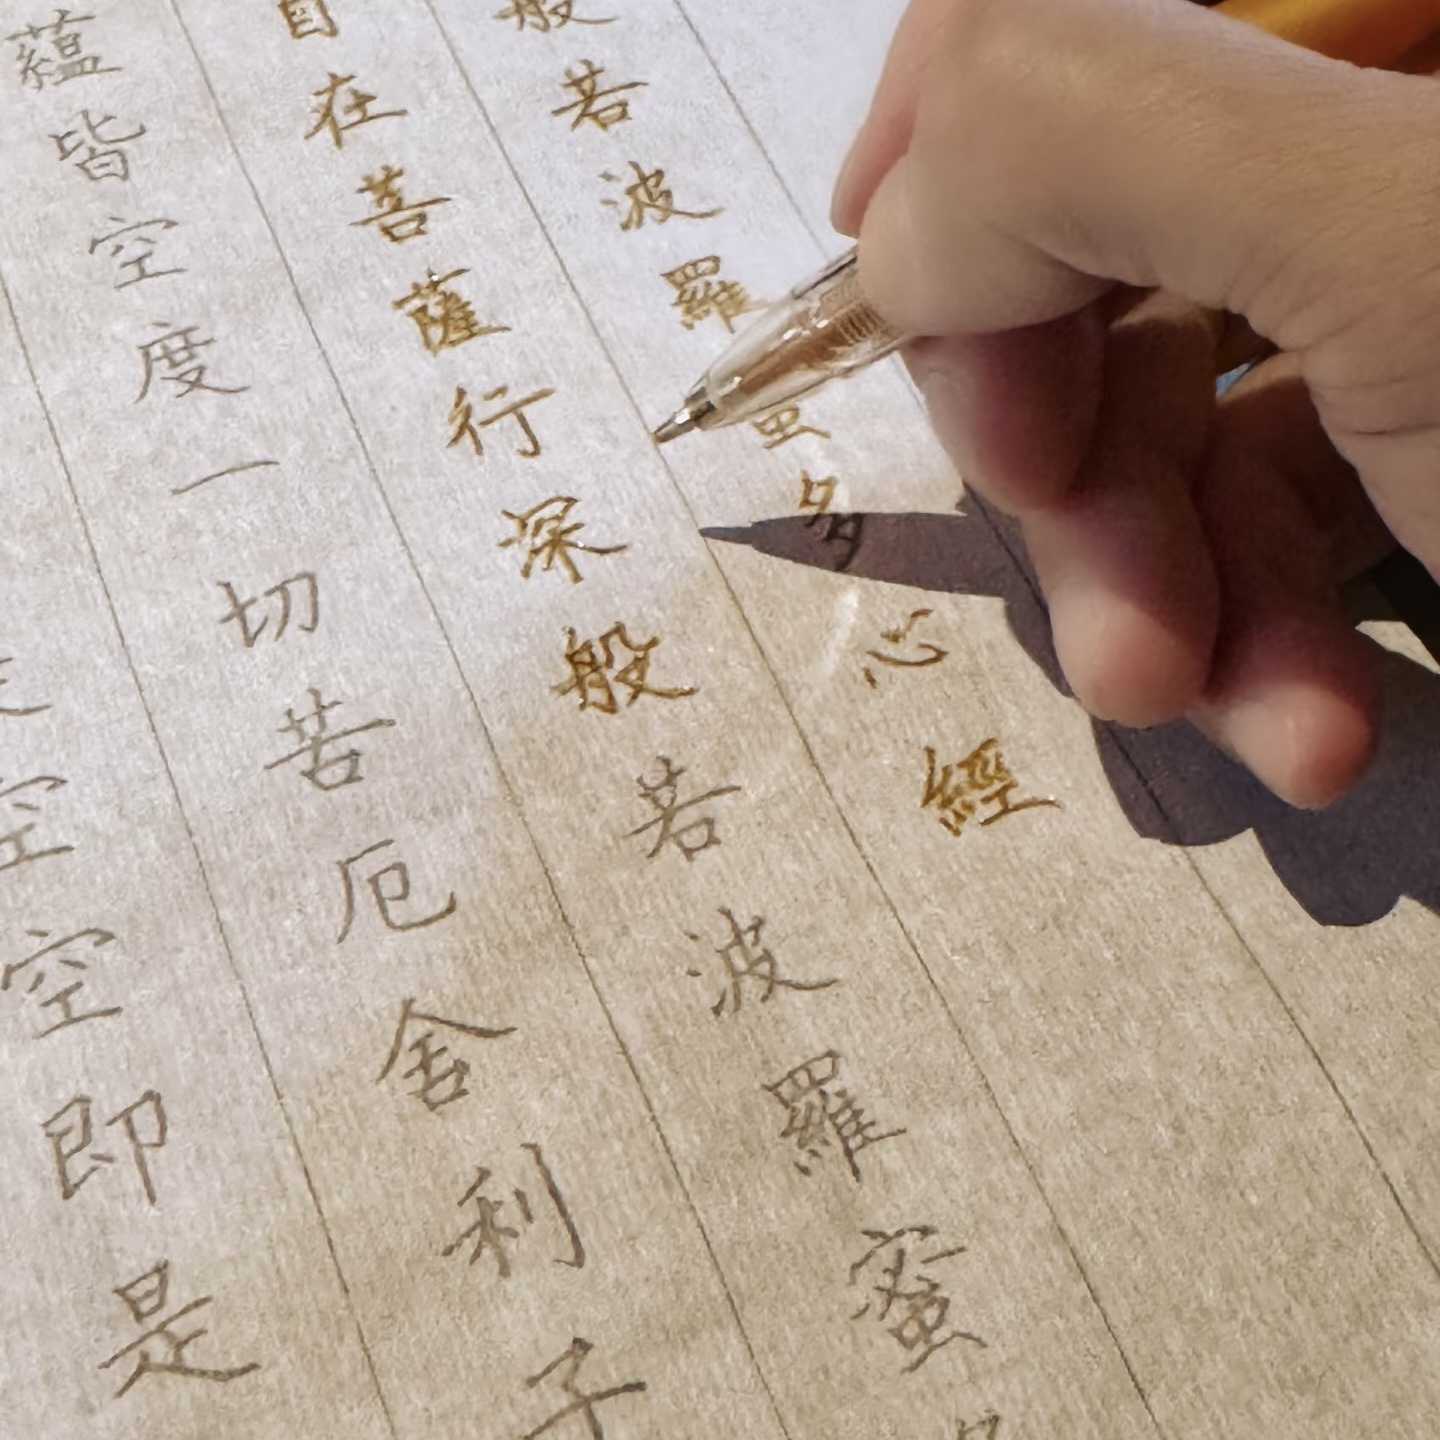 般若波羅蜜多心經
自在菩薩行深般若波羅蜜
蘊皆空度一切苦厄舍利子
空空即是